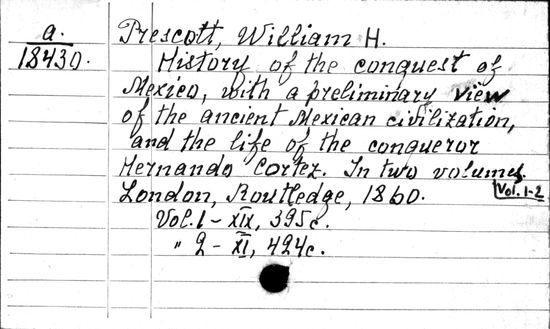 a.
18430.
Prescott, William H.
History of the conquest of
Mexico, with a preliminary view
of the ancient Mexican civilization,
and the life of the conqueror
Hernando Cortez. In two volumes.
London, Routledge, 1860.
Vol. 1-2
Vol. 1 - XIX, 395 c.
" 2 - XI, 424 c.